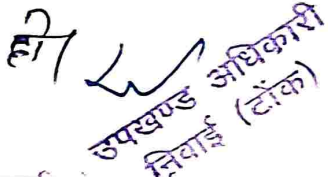 हो।
उपखण्ड अधिकारी
निवाई (टोंक)